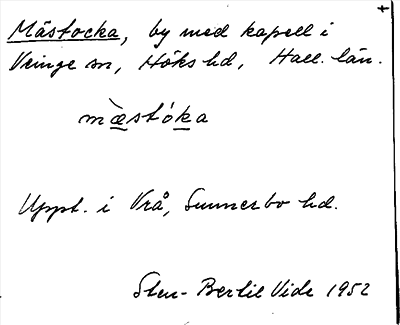 Mästocka, by med kapell i
Veinge sn, Höks hd, Hall. län.
mæ̀stóka
Uppt. i Vrå, Sunnerbo hd.
Sten-Bertil Vide 1952